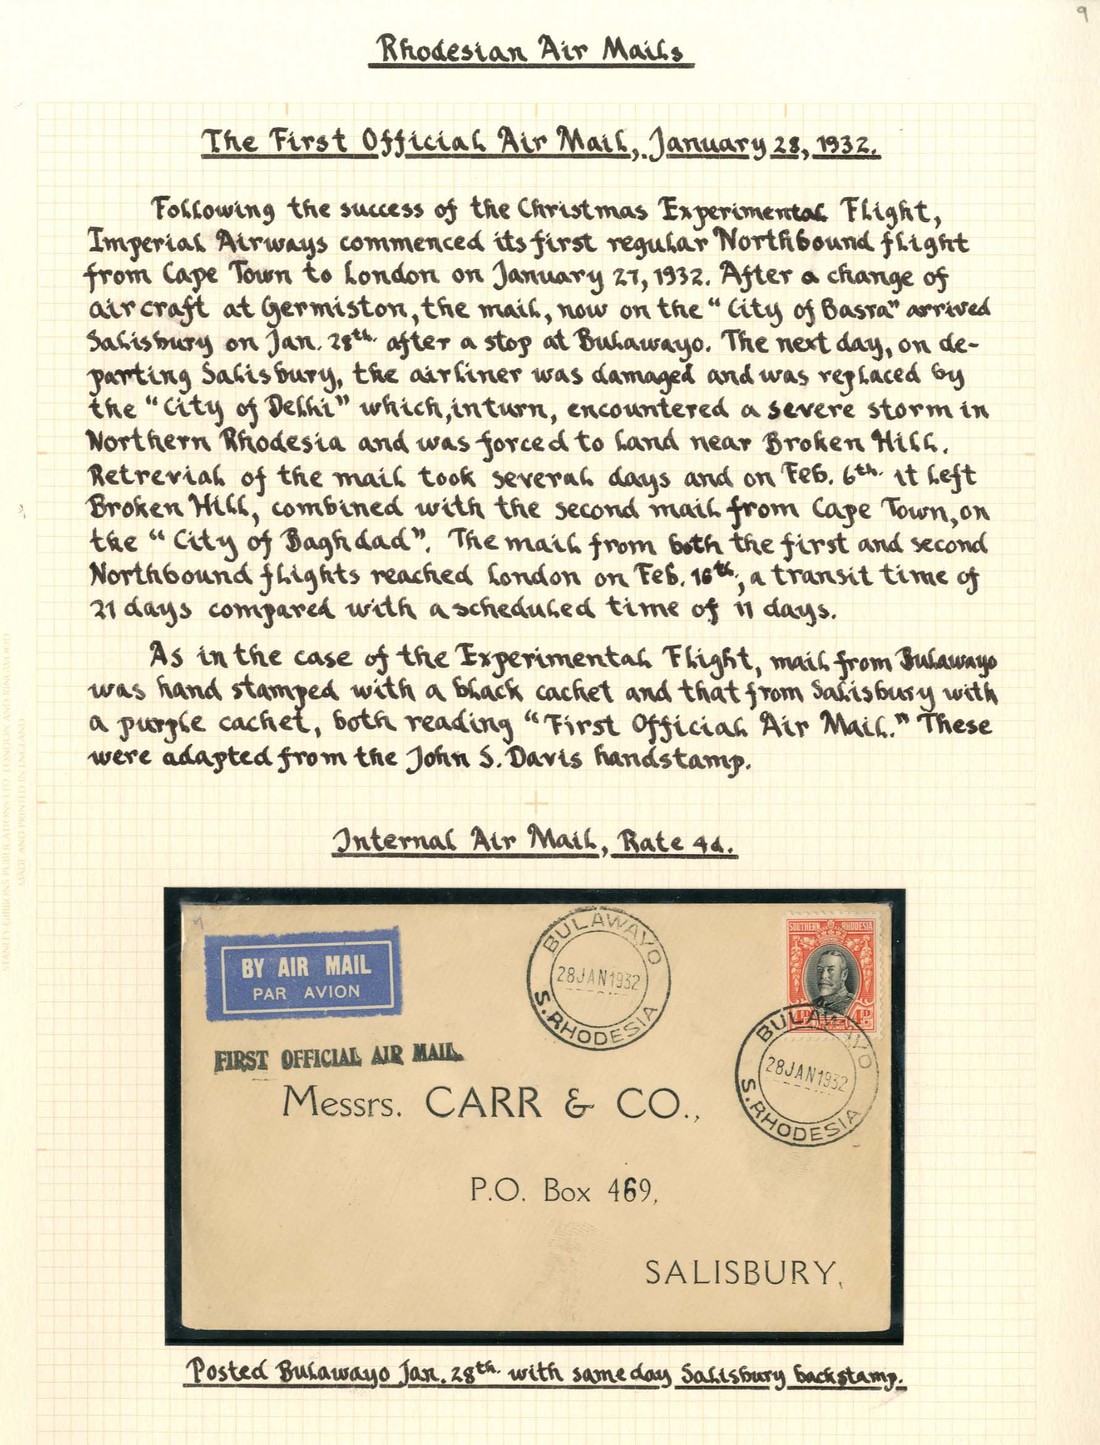 9
Rhodesian Air Mails
The First Official Air Mail, January 28, 1932.
Following the success of the Christmas Experimental Flight,
Imperial Airways commenced its first regular Northbound flight
from Cape Town to London on January 27, 1932. After a change of
aircraft at Germiston, the mail, now on the "City of Basra" arrived
Salisbury on Jan. 28th. after a stop at Bulawayo. The next day, on de-
parting Salisbury, the airliner was damaged and was replaced by
the "City of Delhi" which, in turn, encountered a severe storm in
Northern Rhodesia and was forced to land near Broken Hill.
Retrevial of the mail took several days and on Feb. 6th. it left
Broken Hill, combined with the second mail from Cape Town, on
the "City of Baghdad". The mail from both the first and second
Northbound flights reached London on Feb. 16th, a transit time of
21 days compared with a scheduled time of 11 days.
As in the case of the Experimental Flight, mail from Bulawayo
was hand stamped with a black cachet and that from Salisbury with
a purple cachet, both reading "First Official Air Mail." These
were adapted from the John S. Davis handstamp.
Internal Air Mail, Rate 4d.
BULAWAYO
28 JAN 1932
S. RHODESIA
SOUTHERN RHODESIA
BY AIR MAIL
PAR AVION
4D
BULAWAYO
28 JAN 1932
S. RHODESIA
FIRST OFFICIAL AIR MAIL
Messrs. CARR & CO.,
P.O. Box 469,
SALISBURY.
Posted Bulawayo Jan. 28th. with same day Salisbury backstamp.
STANLEY GIBBONS PUBLICATIONS LTD. LONDON AND RINGWOOD
MADE AND PRINTED IN ENGLAND